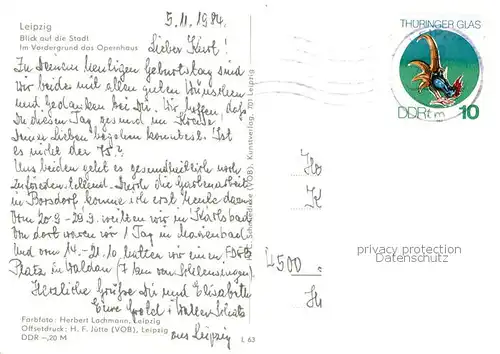 Leipzig
Blick auf die Stadt
Im Vordergrund das Opernhaus
5.11.1984.
Lieber Kurt!
Zu Deinem heutigen Geburtstag sind
wir beide mit allen guten Wünschen
und Gedanken bei Dir. Wir hoffen, daß
Du diesen Tag gesund im Kreise
Deiner Lieben begehen konntest. Ist
es nicht der 75.?
Uns beiden geht es gesundheitlich noch
zufriedenstellend. Durch die Gartenarbeit
in Borsdorf, komme ich erst heute dazu.
Vom 20.9.-29.9. weilten wir in Karlsbad
von dort waren wir 1 Tag in Marienbad
und vom 14.-21.10. hatten wir einen FDGB
Platz in Waldau (7 km von Schleusingen).
Herzliche Grüße Dir und Elisabeth
Eure
aus Leipzig
Farbfoto: Herbert Lachmann, Leipzig
Offsetdruck: H. F. Jütte (VOB), Leipzig
DDR -,20 M
L 63
(VOB), Kunstverlag, 7011 Leipzig
THÜRINGER GLAS
DDR 10
4500
privacy protection
Datenschutz